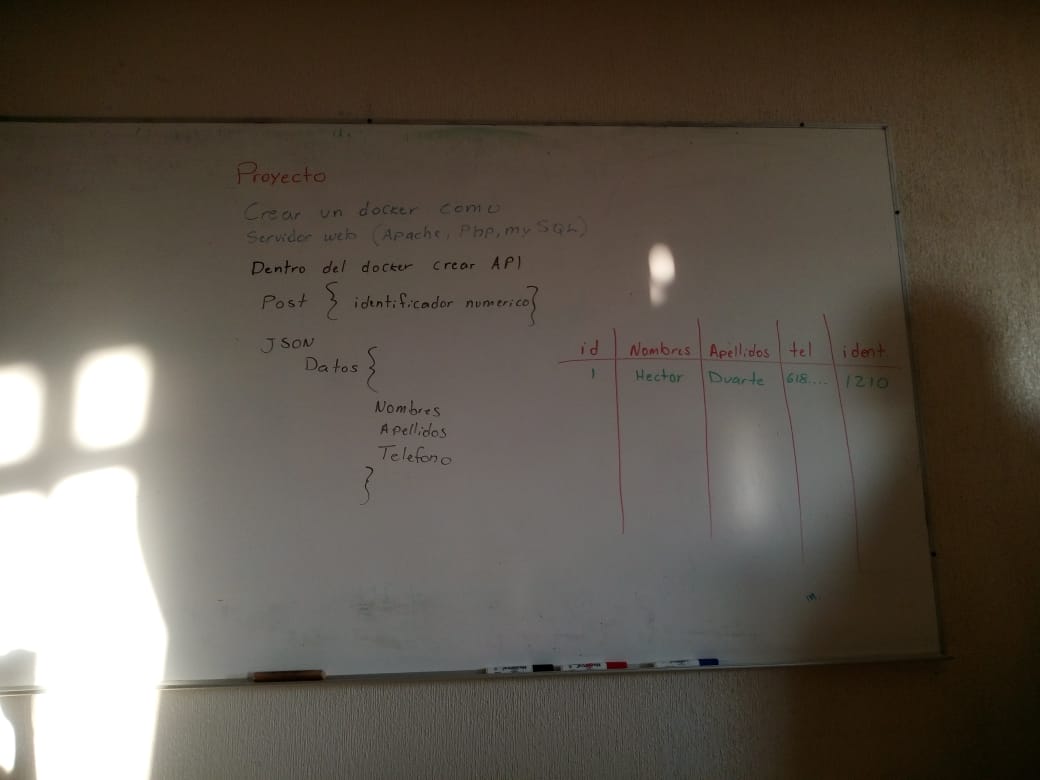 Proyecto
Crear un docker como
Servidor web (Apache, Php, mySQL)
Dentro del docker crear API
Post { identificador numerico}
JSON
Datos {
Nombres
Apellidos
Telefono
}
id Nombres Apellidos tel ident
1 Hector Duarte 618.... 1210